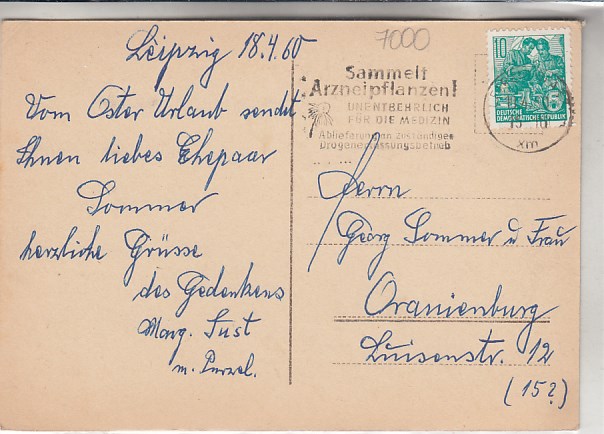 Leipzig 18.4.60
Vom Oster Urlaub sendet
Ihnen liebes Ehepaar
Sommer
herzliche Grüsse
des Gedenkens
Marg. Just
m. Purzel.
7000
Sammelt
Arzneipflanzen!
UNENTBEHRLICH
FÜR DIE MEDIZIN
Ablieferung an zuständigen
Drogenerfassungsbetrieb
10
DEUTSCHE
DEMOKRATISCHE REPUBLIK
Herrn
Georg Sommer u Frau
Oranienburg
Luisenstr. 12
(15?)